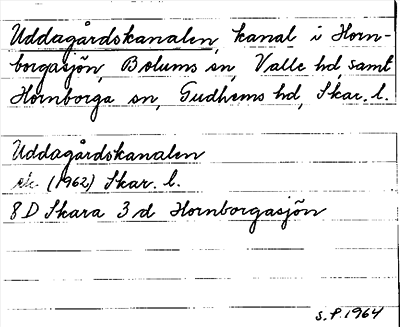 Uddagårdskanalen, kanal i Horn-
borgasjön, Bolums sn, Valle hd, samt
Hornborga sn, Gudhems hd, Skar. l.
Uddagårdskanalen
ek. (1962) Skar. l.
8 D Skara 3 d Hornborgasjön
S. P. 1964